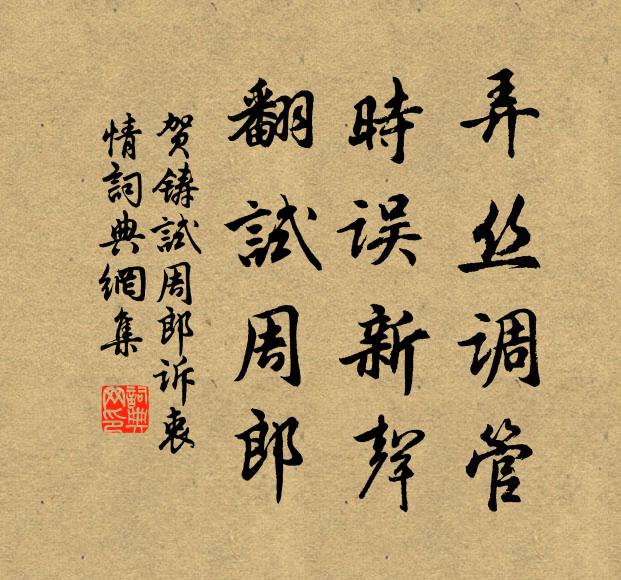 弄丝调管
時误新聲
翻試周郎
贺鑄試周郎诉衷
情詞典網集
詞典网印